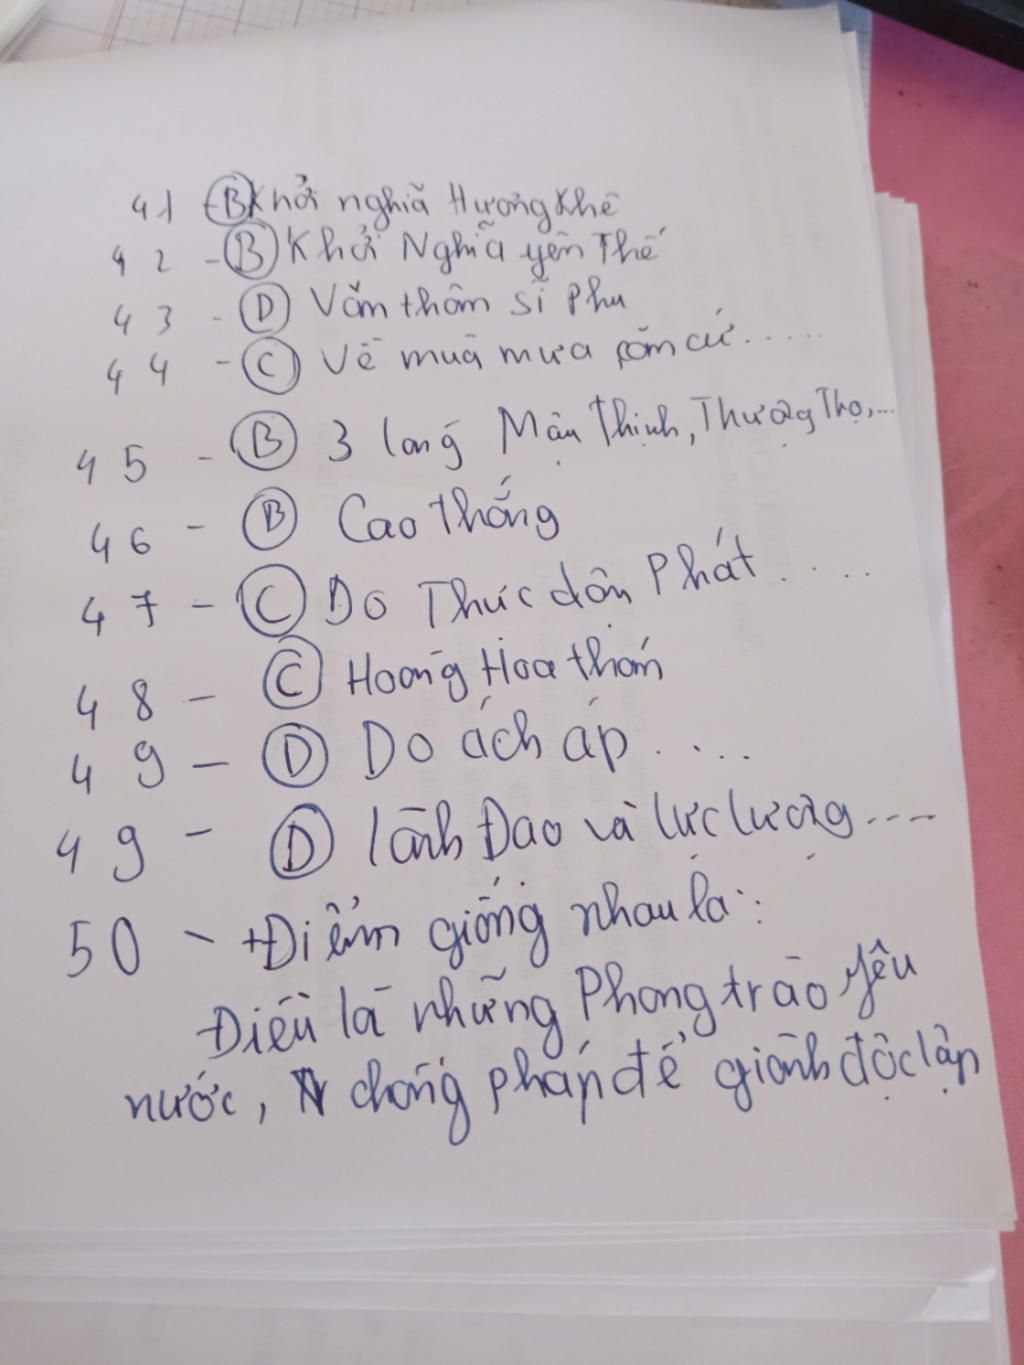 41 - B Khởi nghĩa Hương Khê
42 - B Khởi Nghĩa yên Thế
43 - D Văn thân sĩ Phu
44 - C Về mùa mưa căn cứ.....
45 - B 3 làng Mậu Thịnh, Thượng Thọ,...
46 - B Cao Thắng
47 - C Do Thực dân Phát....
48 - C Hoàng Hoa thám
49 - D Do ách áp....
49 - D lãnh Đạo và lực lượng....
50 - +Điểm giống nhau là:
Điều là những Phong trào yêu
nước, chống pháp để giành độc lập